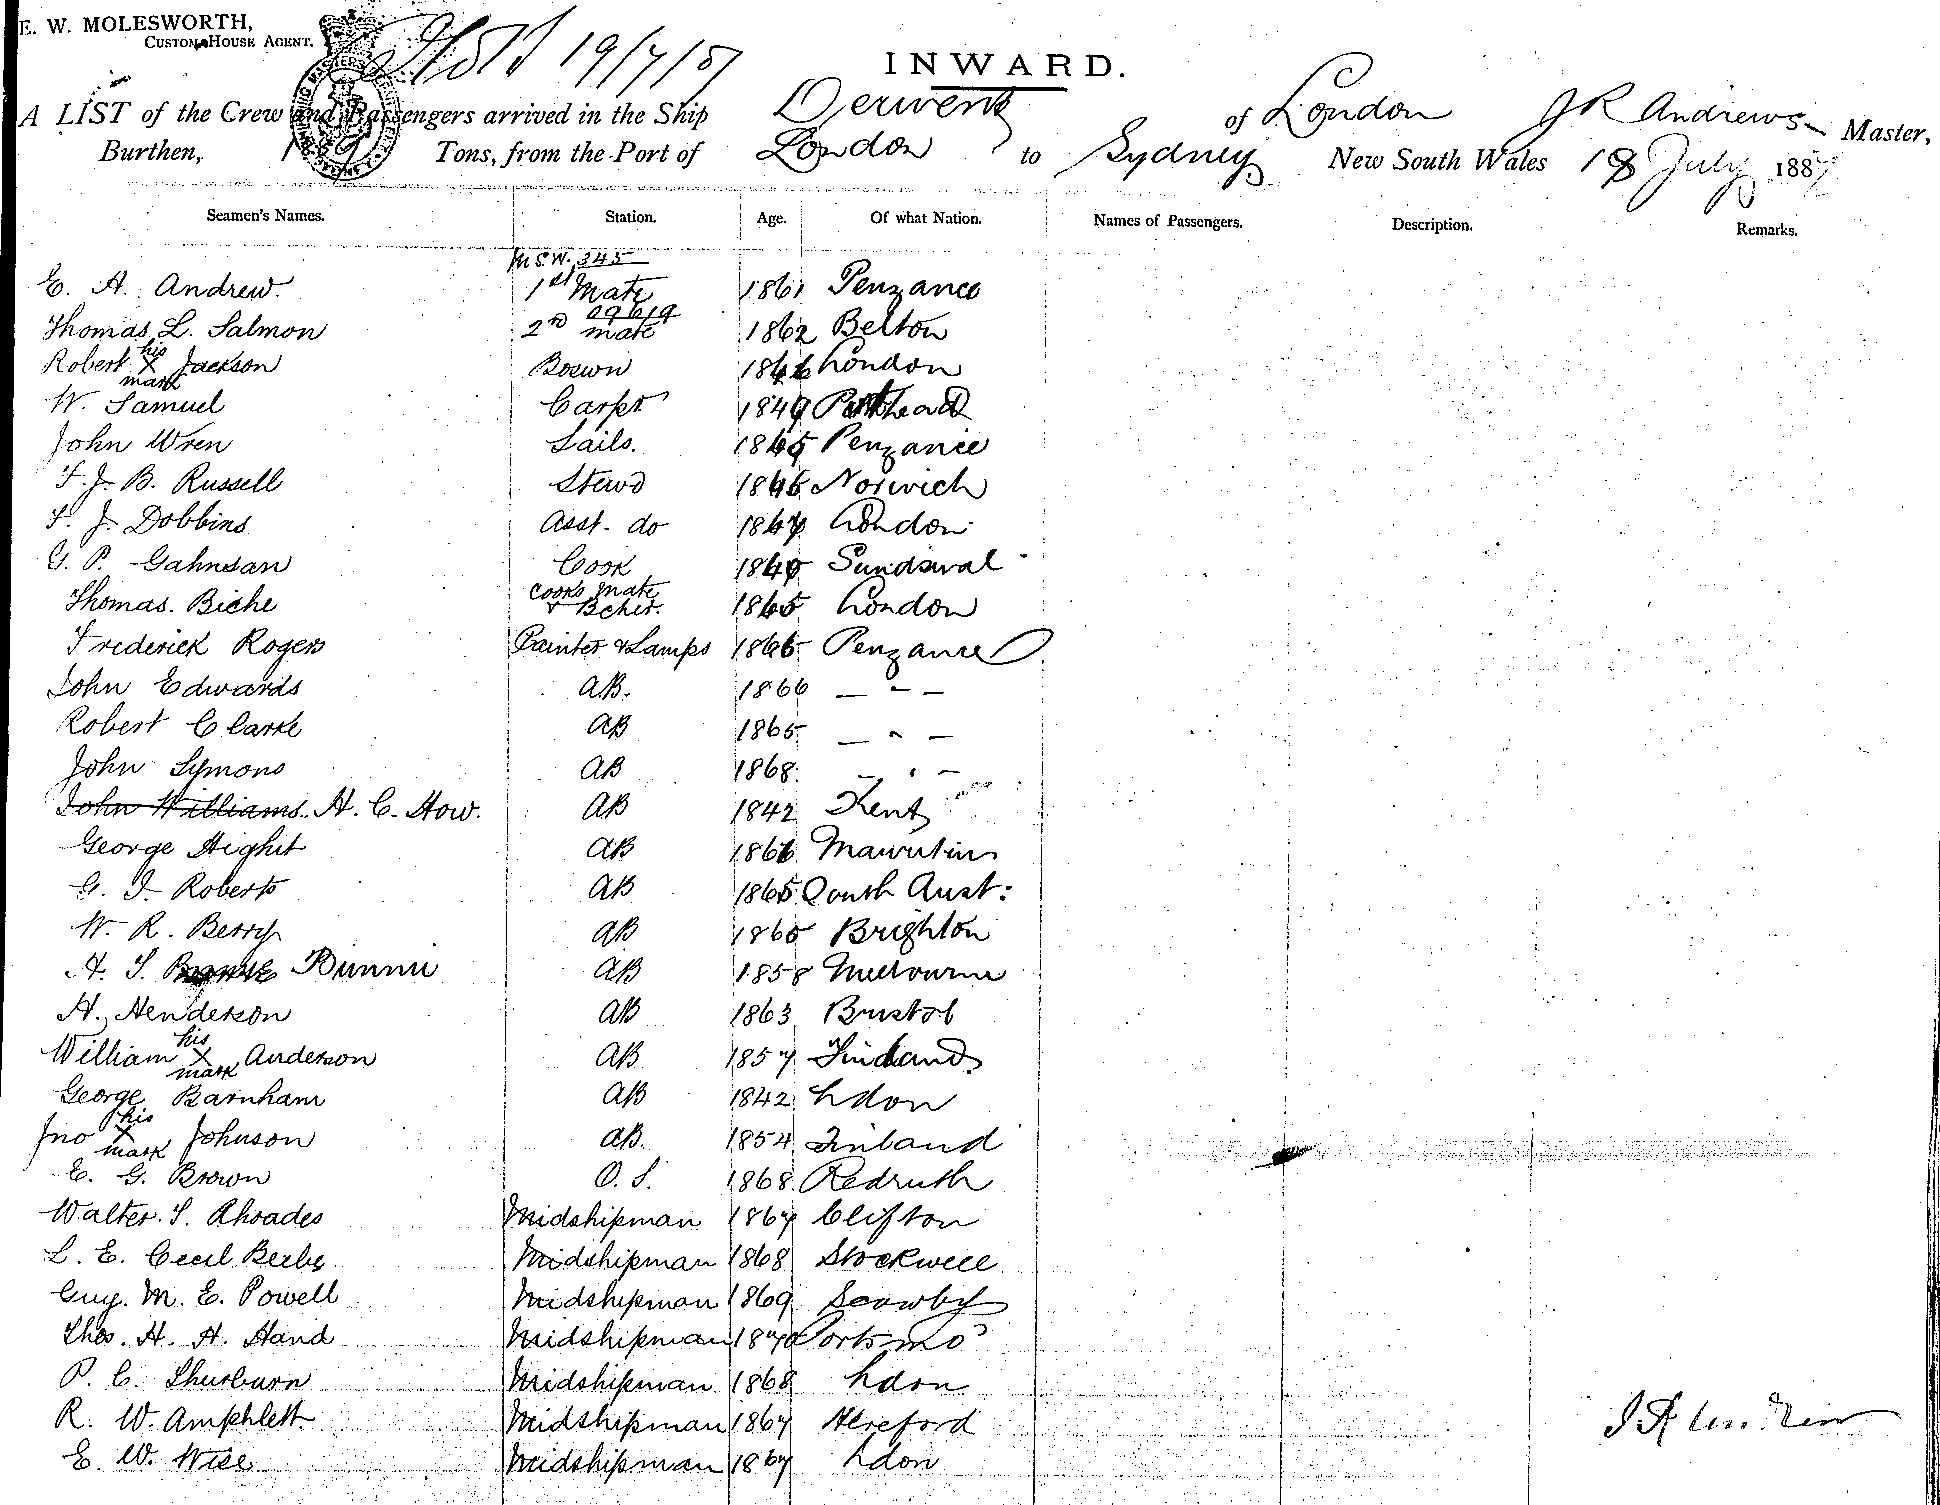 E. W. MOLESWORTH,
CUSTOM HOUSE AGENT.
19/7/87
INWARD.
A LIST of the Crew and Passengers arrived in the Ship Derwent of London J R Andrews Master,
Burthen, Tons, from the Port of London to Sydney New South Wales 18 July 1887
Seamen's Names. Station. Age. Of what Nation. Names of Passengers. Description. Remarks.
N.S.W. 345
E. A. Andrew. 1st Mate 1861 Penzance
09619
Thomas L. Salmon 2nd mate 1862 Belton
Robert his X mark Jackson Boswn 1866 London
W. Samuel Carpr 1849
John Wren Sails. 1865 Penzance
F. J. B. Russell Stewd 1846 Norwich
F. J. Dobbins Asst. do 1867 London
G. P. Gahnsan Cook 1840 Sundswal
Thomas. Biche Cooks mate & Bcher. 1865 London
Frederick Rogers Painter & Lamps 1866 Penzance
John Edwards AB. 1866 — " —
Robert Clarke AB 1865 — " —
John Symons AB 1868 — " —
John Williams. H. C. How. AB 1842 Kent
George Hight AB 1866 Mauritius
G. J. Roberts AB 1865 South Aust:
W. R. Berry AB 1865 Brighton
A. S. Bunnii AB 1858 Melbourne
A. Henderson AB 1863 Bristol
William his X mark Anderson AB 1857 Finland
George Barnham AB 1842 Ldon
Jno his X mark Johnson AB. 1854 Finland
E. G. Brown O. S. 1868 Redruth
Walter. S. Rhoades Midshipman 1867 Clifton
L. E. Cecil Beebe Midshipman 1868 Stockwell
Guy. M. E. Powell Midshipman 1869 Scawby
Thos. H. A. Hand Midshipman 1870 Portsmo
P. C. Thurburn Midshipman 1868 Ldon
R. W. Amphlett Midshipman 1867 Hereford
E. W. Wise Midshipman 1867 Ldon